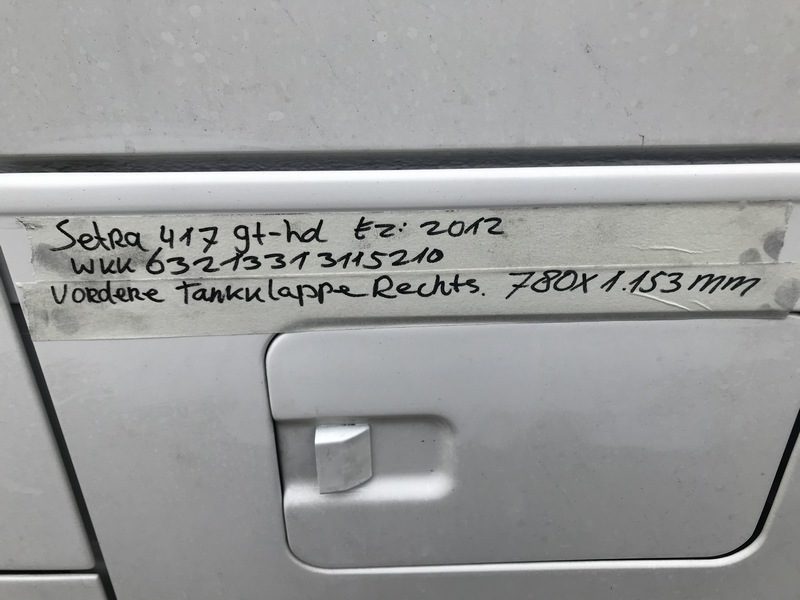 Setra 417 gt-hd EZ: 2012
WKK 63213313115210
Vordere Tankklappe Rechts. 780x1.153mm